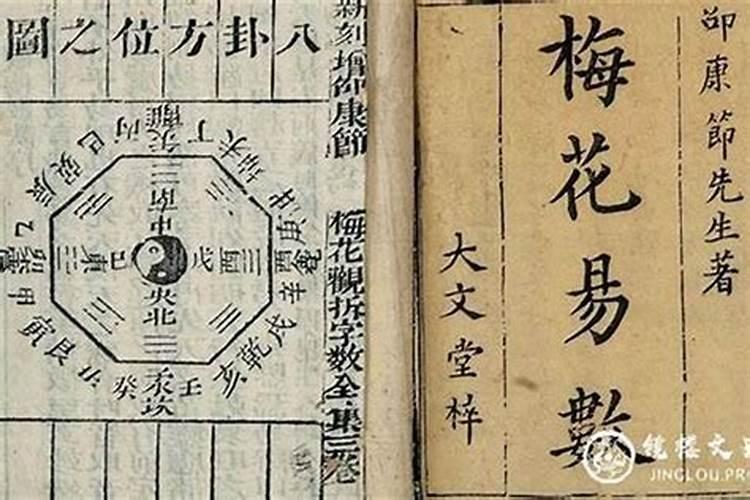 邵康節先生著
梅花易數
大文堂梓
新刻增仰康節
梅花觀拆字數全集三卷
八卦方位之圖
巳 丙 丁 未 申
辰 巽 離 坤 庚
南
乙 東 巳 中 戊 酉 西
甲 央 辛
北
寅 艮 丑 癸 壬 亥 乾 戌
坎
JINGLOU.PR